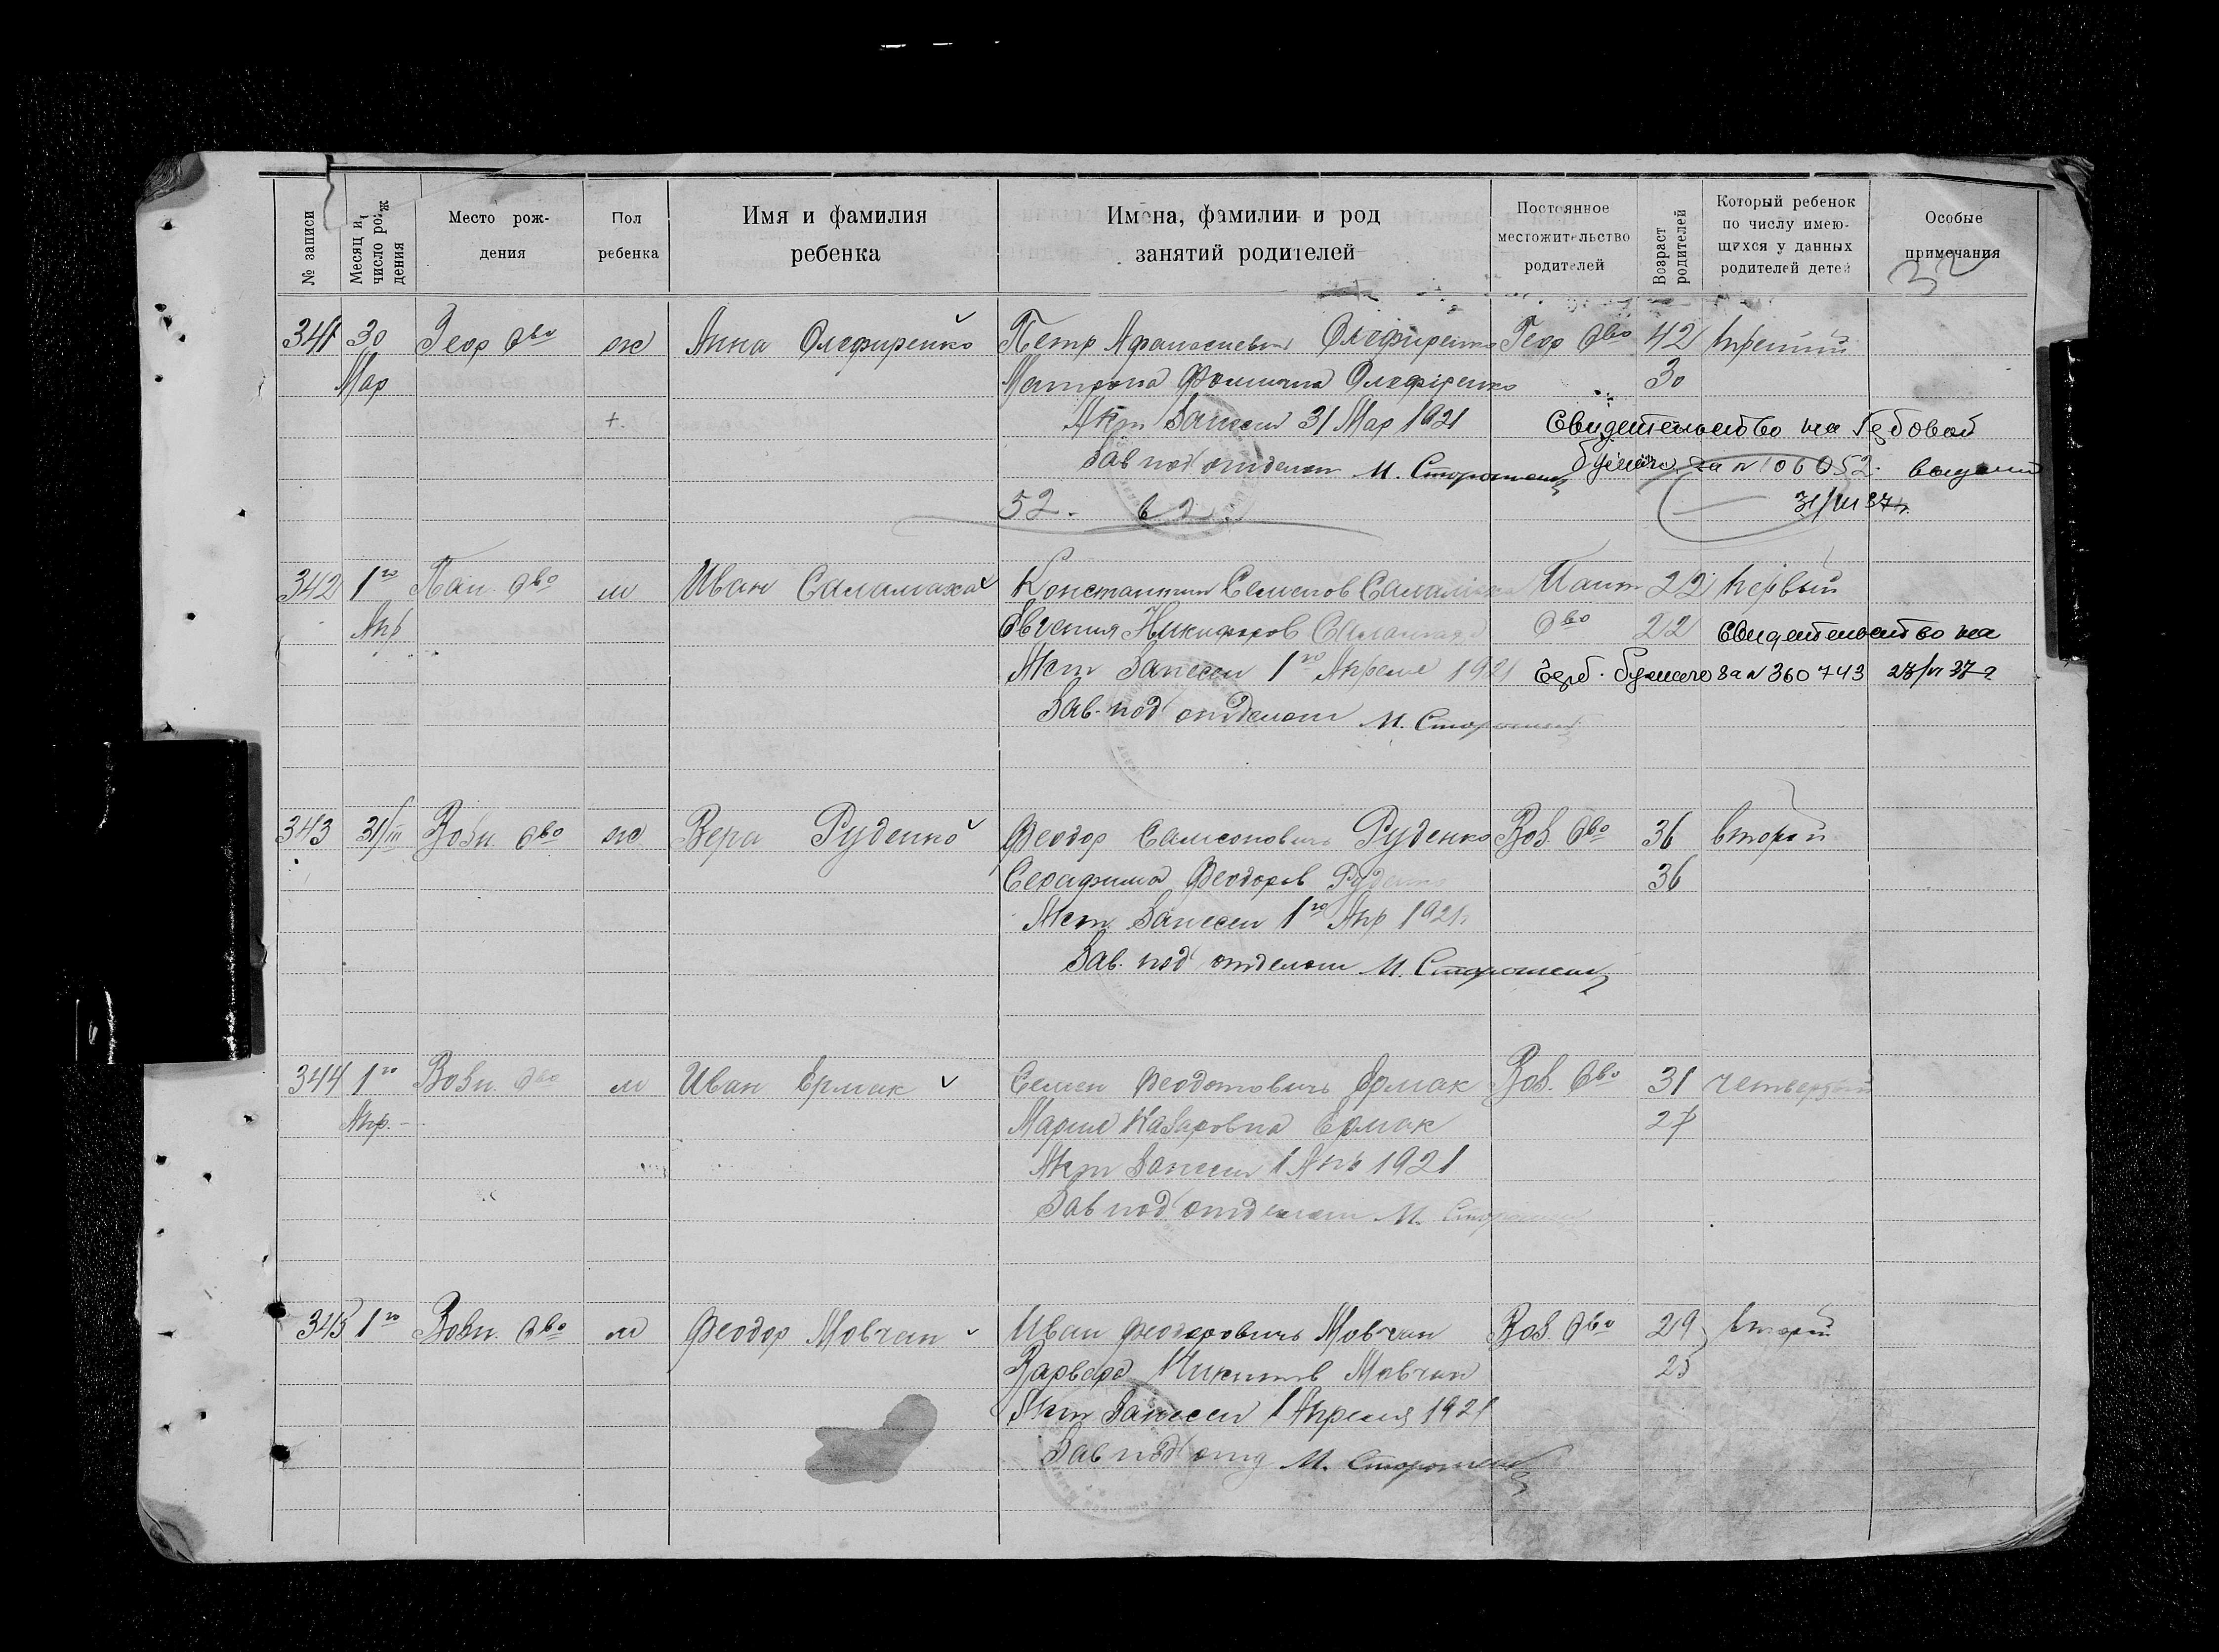 № записи
Месяц и число рож-
дения
Место рож-
дения
Пол
ребенка
Имя и фамилия
ребенка
Имена, фамилии и род
занятий родителей
Постоянное
местожительство
родителей
Возраст
родителей
Который ребенок
по числу имею-
щихся у данных
родителей детей
Особые
примечания
32
341 30 Геор О-во ж Анна Олефиренко Петр Афанасиевич Олефиренко Геор О-во 42 третий
Мар Матрона Фомична Олефиренко 30
+. Акт Занесен 31 Мар 1921 Свидетельство на Гербовой
Зав под отделом М. бумаге за № 106052. выдано
52. 62. 31/III 37г.
342 1го Пан. О-во м Иван Саламаха Константин Семенов Саламаха Пант 22 первый
Апр Евгения Никифоров Саламаха О-во 22 Свидетельство на
Акт Занесен 1го Апреля 1921 Герб. бумаге за № 360743 28/VI 37г
Зав. под отделом М.
343 31/III Вовн. О-во ж Вера Руденко Феодор Самсонович Руденко Вов. О-во 36 второй
Серафима Феодоров Руденко 36
Акт Занесен 1го Апр 1921г
Зав. под отделом М.
344 1го Вовн. О-во м Иван Ермак Семен Феодотович Ермак Вов. О-во 31 четвертый
Апр. Мария Назаровна Ермак 27
Акт Занесен 1 Апр 1921
Зав под отделом М.
345 1го Вовн. О-во м Феодор Мовчан Иван Феодорович Мовчан Вов. О-во 29 второй
Варвара Никитов Мовчан 25
Акт Занесен 1 Апреля 1921
Зав под отд М.